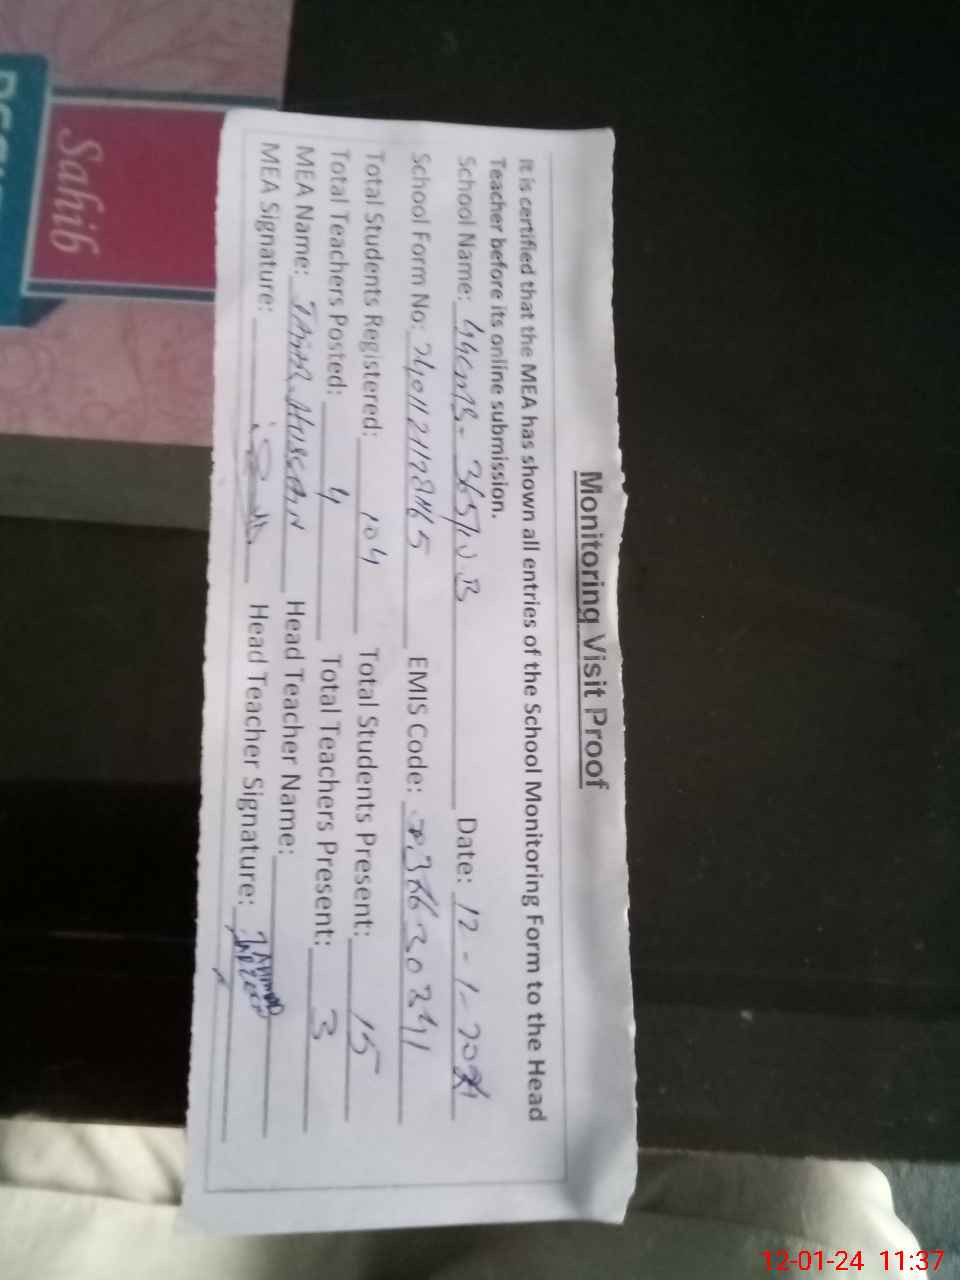 Monitoring Visit Proof
It is certified that the MEA has shown all entries of the School Monitoring Form to the Head
Teacher before its online submission.
School Name: Date: 12-1-2024
School Form No: EMIS Code:
Total Students Registered: 104 Total Students Present: 15
Total Teachers Posted: 4 Total Teachers Present: 3
MEA Name: Head Teacher Name:
MEA Signature: Head Teacher Signature:
Sahib
12-01-24 11:37